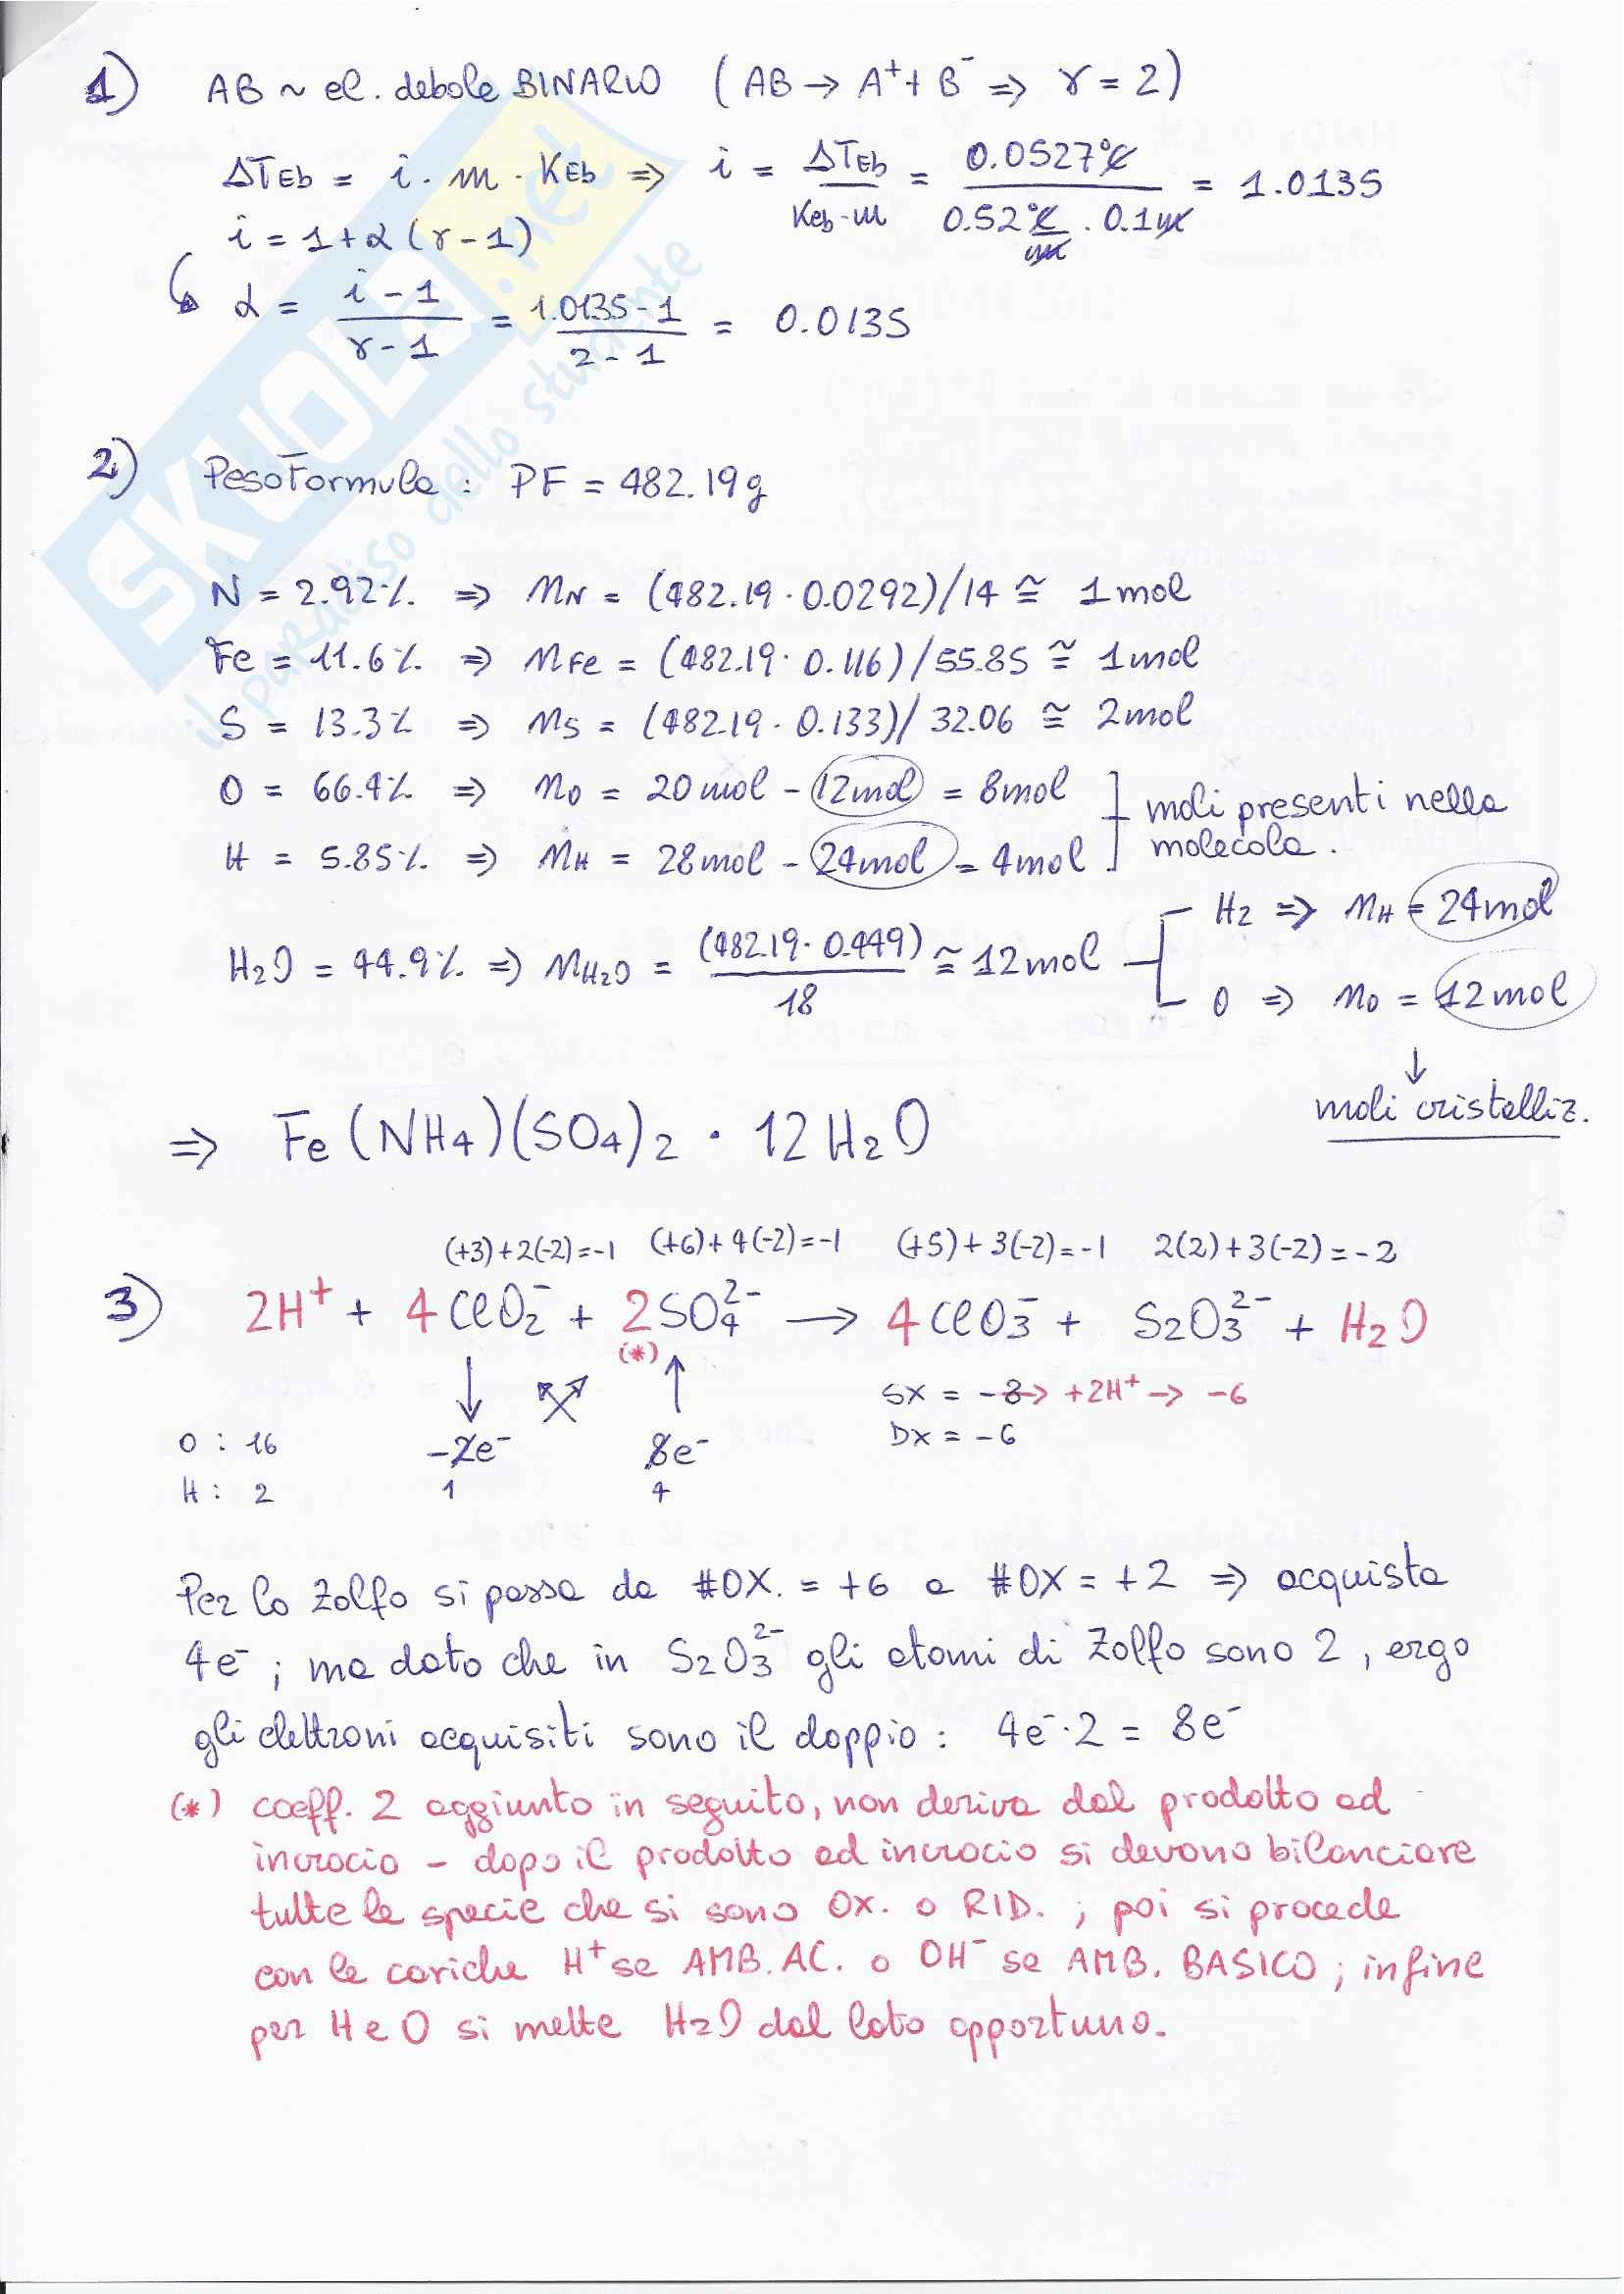 1) AB ~ el. debole BINARIO (AB → A⁺ + B⁻ ⇒ γ = 2)
ΔTEb = i · m · KEb ⇒ i = ΔTEb / Keb·m = 0.0527°C / 0.52 °C/m · 0.1m = 1.0135
i = 1 + α (γ - 1)
α = i - 1 / γ - 1 = 1.0135 - 1 / 2 - 1 = 0.0135
2) Peso Formula : PF = 482.19g
N = 2.92% ⇒ MN = (482.19 · 0.0292)/14 ≅ 1 mol
Fe = 11.6% ⇒ MFe = (482.19 · 0.116)/55.85 ≅ 1 mol
S = 13.3% ⇒ MS = (482.19 · 0.133)/32.06 ≅ 2 mol
O = 66.4% ⇒ MO = 20 mol - 12 mol = 8 mol
H = 5.85% ⇒ MH = 28 mol - 24 mol = 4 mol
moli presenti nella
molecola.
H2O = 44.9% ⇒ MH2O = (482.19 · 0.449) / 18 ≅ 12 mol
H2 ⇒ MH = 24 mol
O ⇒ MO = 12 mol
↓
moli cristalliz.
⇒ Fe(NH4)(SO4)2 · 12 H2O
(+3)+2(-2)=-1 (+6)+4(-2)=-1 (+5)+3(-2)=-1 2(2)+3(-2)=-2
3) 2H⁺ + 4ClO2⁻ + 2SO4²⁻ → 4ClO3⁻ + S2O3²⁻ + H2O
(*)
SX = -8 → +2H⁺ → -6
DX = -6
O : 16 -2e⁻ 8e⁻
H : 2 1 4
Per lo Zolfo si passa da #OX. = +6 a #OX = +2 ⇒ acquista
4e⁻ ; ma dato che in S2O3²⁻ gli atomi di Zolfo sono 2, ergo
gli elettroni acquisiti sono il doppio : 4e⁻·2 = 8e⁻
(*) coeff. 2 aggiunto in seguito, non deriva dal prodotto ad
incrocio - dopo il prodotto ad incrocio si devono bilanciare
tutte le specie che si sono OX. o RID. ; poi si procede
con le cariche H⁺ se AMB. AC. o OH⁻ se AMB. BASICO ; infine
per H e O si mette H2O dal lato opportuno.
SKUOLA.net
il paradiso dello studente